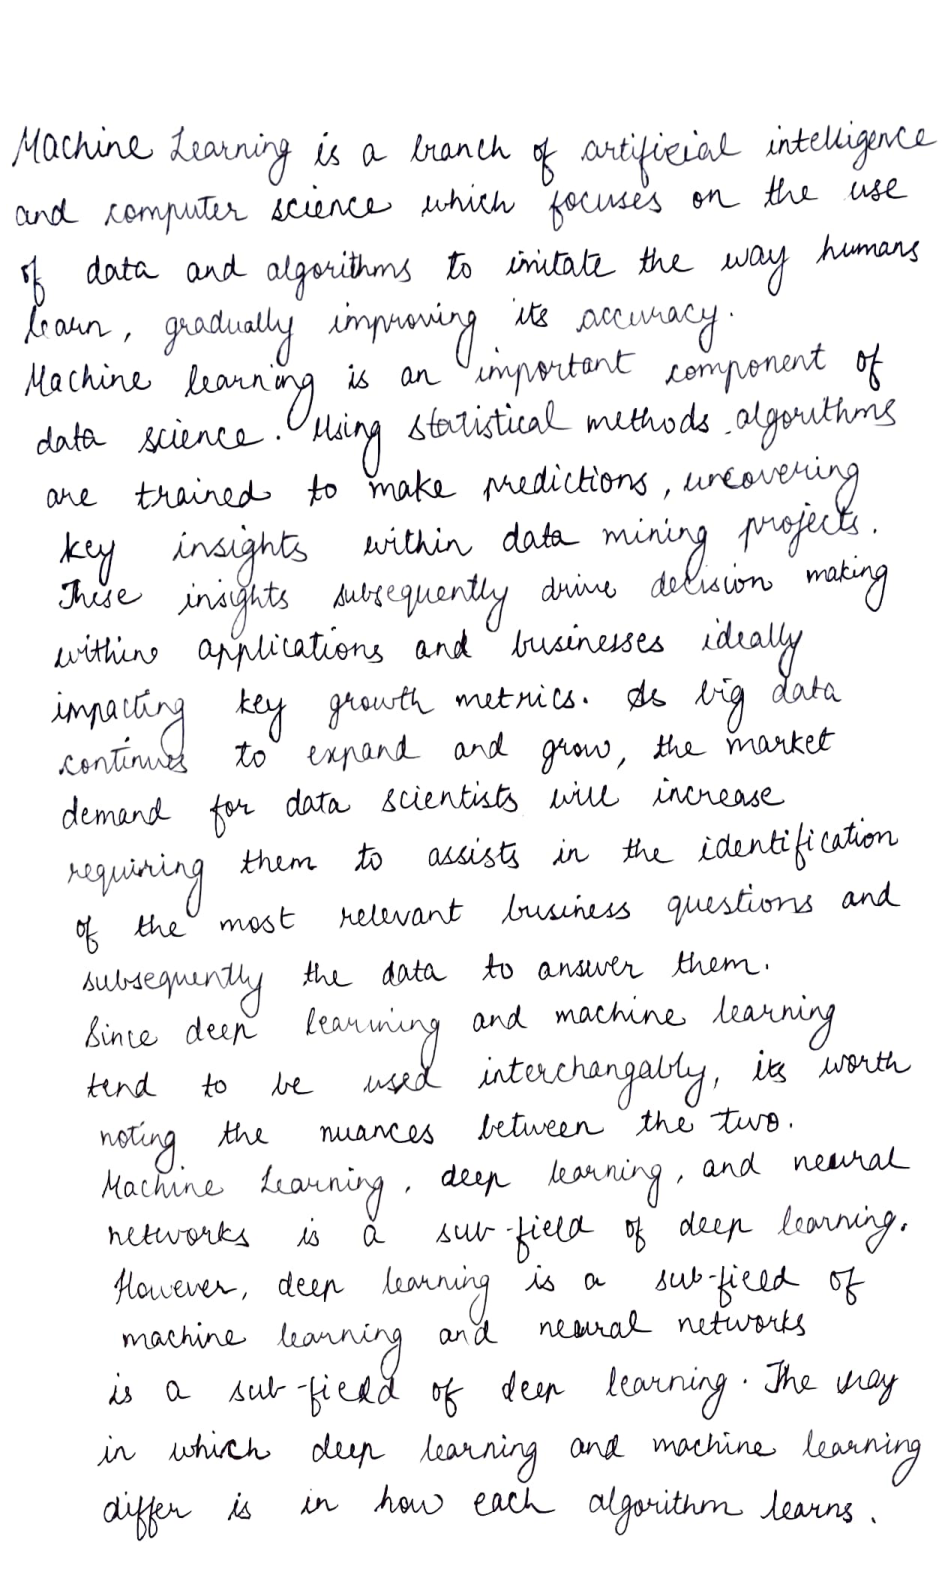 Machine Learning is a branch of artificial intelligence
and computer science which focuses on the use
of data and algorithms to imitate the way humans
learn, gradually improving its accuracy.
Machine learning is an important component of
data science. Using statistical methods algorithms
are trained to make predictions, uncovering
key insights within data mining projects.
These insights subsequently drive decision making
within applications and businesses ideally
impacting key growth metrics. As big data
continues to expand and grow, the market
demand for data scientists will increase
requiring them to assists in the identification
of the most relevant business questions and
subsequently the data to answer them.
Since deep learning and machine learning
tend to be used interchangably, its worth
noting the nuances between the two.
Machine Learning, deep learning, and neural
networks is a sub-field of deep learning.
However, deep learning is a sub-field of
machine learning and neural networks
is a sub-field of deep learning. The way
in which deep learning and machine learning
differ is in how each algorithm learns.